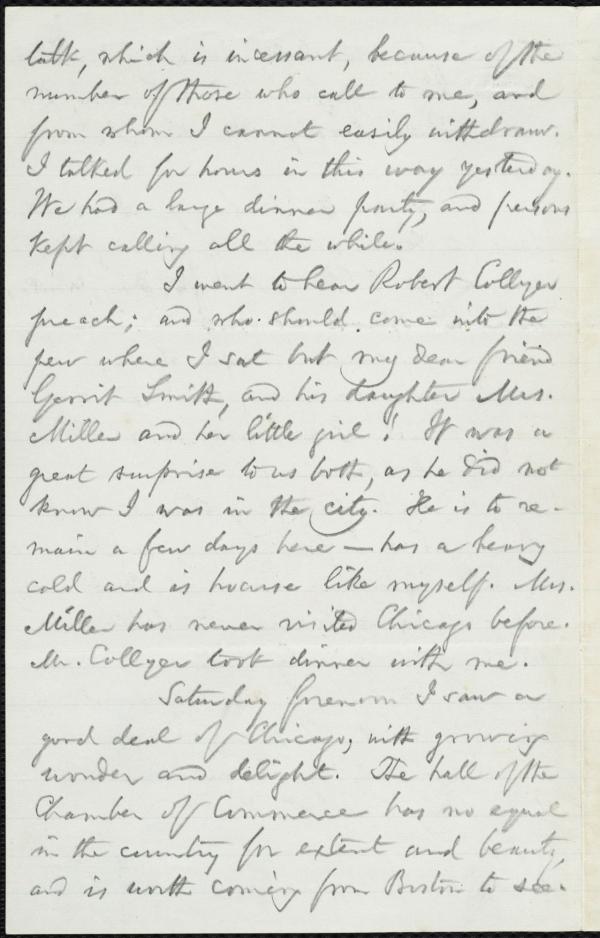 talk, which is incessant, because of the
number of those who call to me, and
from whom I cannot easily withdraw.
I talked for hours in this way yesterday.
We had a large dinner party, and persons
kept calling all the while.
I went to hear Robert Collyer
preach; and who should come into the
pew where I sat but my dear friend
Gerrit Smith, and his daughter Mrs.
Miller and her little girl! It was a
great surprise to us both, as he did not
know I was in the city. He is to re-
main a few days here — has a heavy
cold and is hoarse like myself. Mrs.
Miller has never visited Chicago before.
Mr. Collyer took dinner with me.
Saturday forenoon I saw a
good deal of Chicago, with growing
wonder and delight. The hall of the
Chamber of Commerce has no equal
in the country for extent and beauty,
and is worth coming from Boston to see.